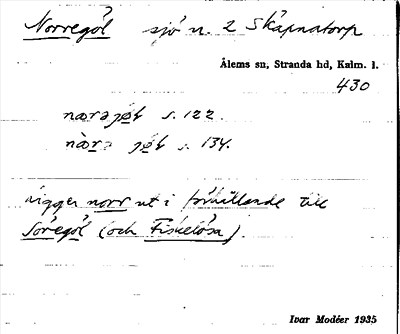 Norregöl sjö n. 2 Skäpnatorp
Ålems sn, Stranda hd, Kalm. l.
430
nærəjøl s. 122.
nærə jøl s. 134.
ligger norr ut i förhållande till
Söregöl (och Fiskelösa).
Ivar Modéer 1935